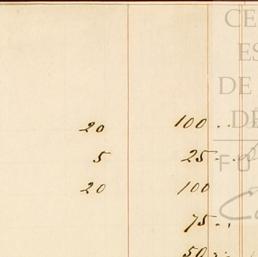 CE
ES
DE
DE
20 100 ..
5 25 ..
FU
20 100
75 ..
50 ..